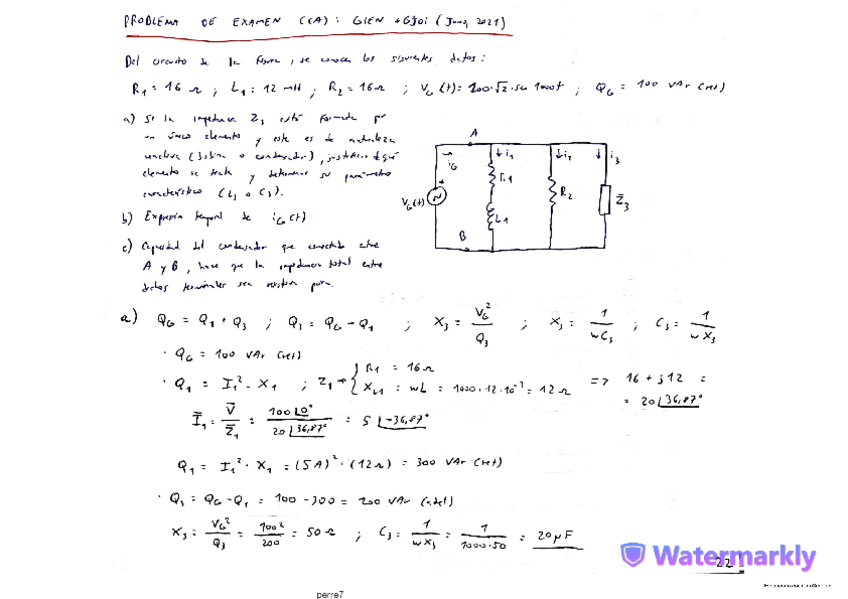 PROBLEMA DE EXAMEN (CA): GIEN + GJOI (Junio, 2021)
Del circuito de la figura, se conocen los siguientes datos:
R1 = 16 Ω ; L1 = 12 mH ; R2 = 16 Ω ; VG(t) = 100·√2·sen 1000t ; QG = 100 VAr (ret)
a) Si la impedancia Z3 está formada por
un único elemento y este es de naturaleza
reactiva (bobina o condensador), justificar de qué
elemento se trata y determinar su parámetro
característico (L3 o C3).
b) Expresión temporal de iG(t)
c) Capacidad del condensador que conectado entre
A y B, hace que la impedancia total entre
dichos terminales sea resistiva pura.
A
iG
i1
i2
i3
R1
R2
Z̄3
VG(t)
L1
B
a) QG = Q1 + Q3 ; Q3 = QG - Q1 ; X3 = VG²/Q3 ; X3 = 1/wC3 ; C3 = 1/wX3
· QG = 100 VAr (ret)
· Q1 = I1² · X1 ; Z1 → { R1 = 16 Ω
XL1 = wL = 1000·12·10⁻³ = 12 Ω => 16 + j12 =
= 20∠36,87°
Ī1 = V̄/Z̄1 = 100∠0°/20∠36,87° = 5∠-36,87°
Q1 = I1² · X1 = (5A)² · (12Ω) = 300 VAr (ret)
· Q3 = QG - Q1 = 100 - 300 = 200 VAr (adel)
X3 = VG²/Q3 = 100²/200 = 50 Ω ; C3 = 1/wX3 = 1/1000·50 = 20 μF
Watermarkly
perre7